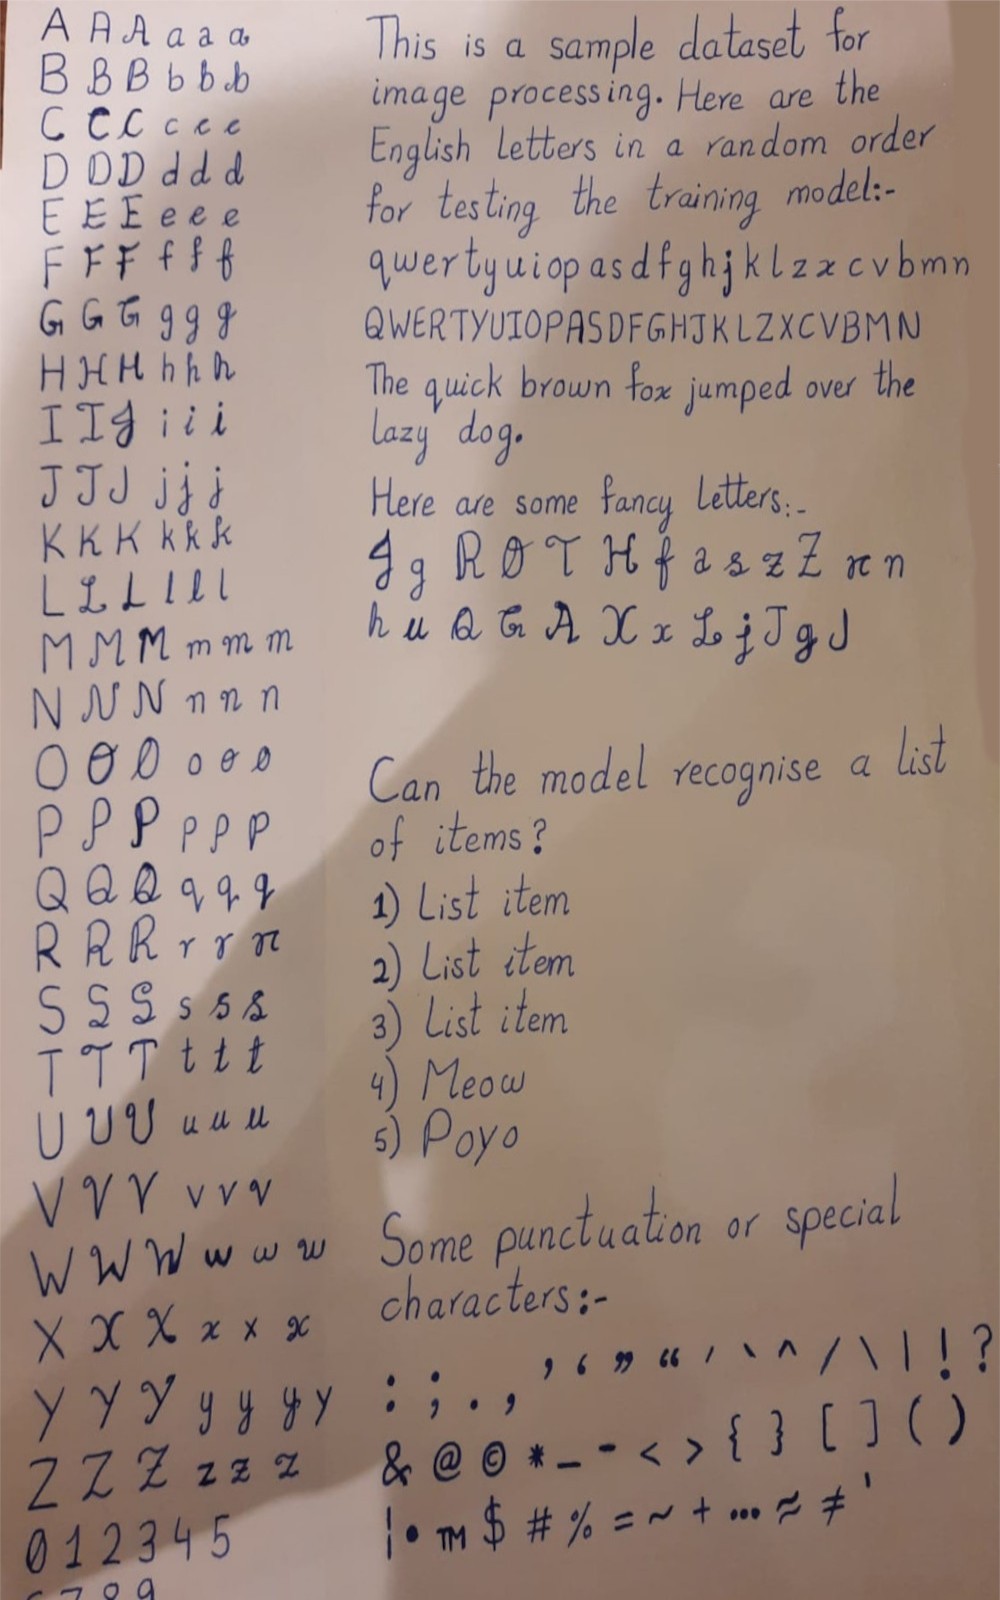 A A A a a a
B B B b b b
C C C c c c
D D D d d d
E E E e e e
F F F f f f
G G G g g g
H H H h h h
I I I i i i
J J J j j j
K K K k k k
L L L l l l
M M M m m m
N N N n n n
O O O o o o
P P P p p p
Q Q Q q q q
R R R r r r
S S S s s s
T T T t t t
U U U u u u
V V V v v v
W W W w w w
X X X x x x
Y Y Y y y y y
Z Z Z z z z
0 1 2 3 4 5
6 7 8 9
This is a sample dataset for
image processing. Here are the
English Letters in a random order
for testing the training model:-
qwertyuiopasdfghjklzxcvbmn
QWERTYUIOPASDFGHJKLZXCVBMN
The quick brown fox jumped over the
lazy dog.
Here are some fancy Letters:-
I g R O T H f a s z Z r n
h u Q G A X x L j J g J
Can the model recognise a list
of items?
1) List item
2) List item
3) List item
4) Meow
5) Poyo
Some punctuation or special
characters:-
: ; . , ’ ‘ ” “ ′ ` ^ / \ | ! ?
& @ © * _ - < > { } [ ] ( )
¦ • ™ $ # % = ~ + … ≈ ≠ '